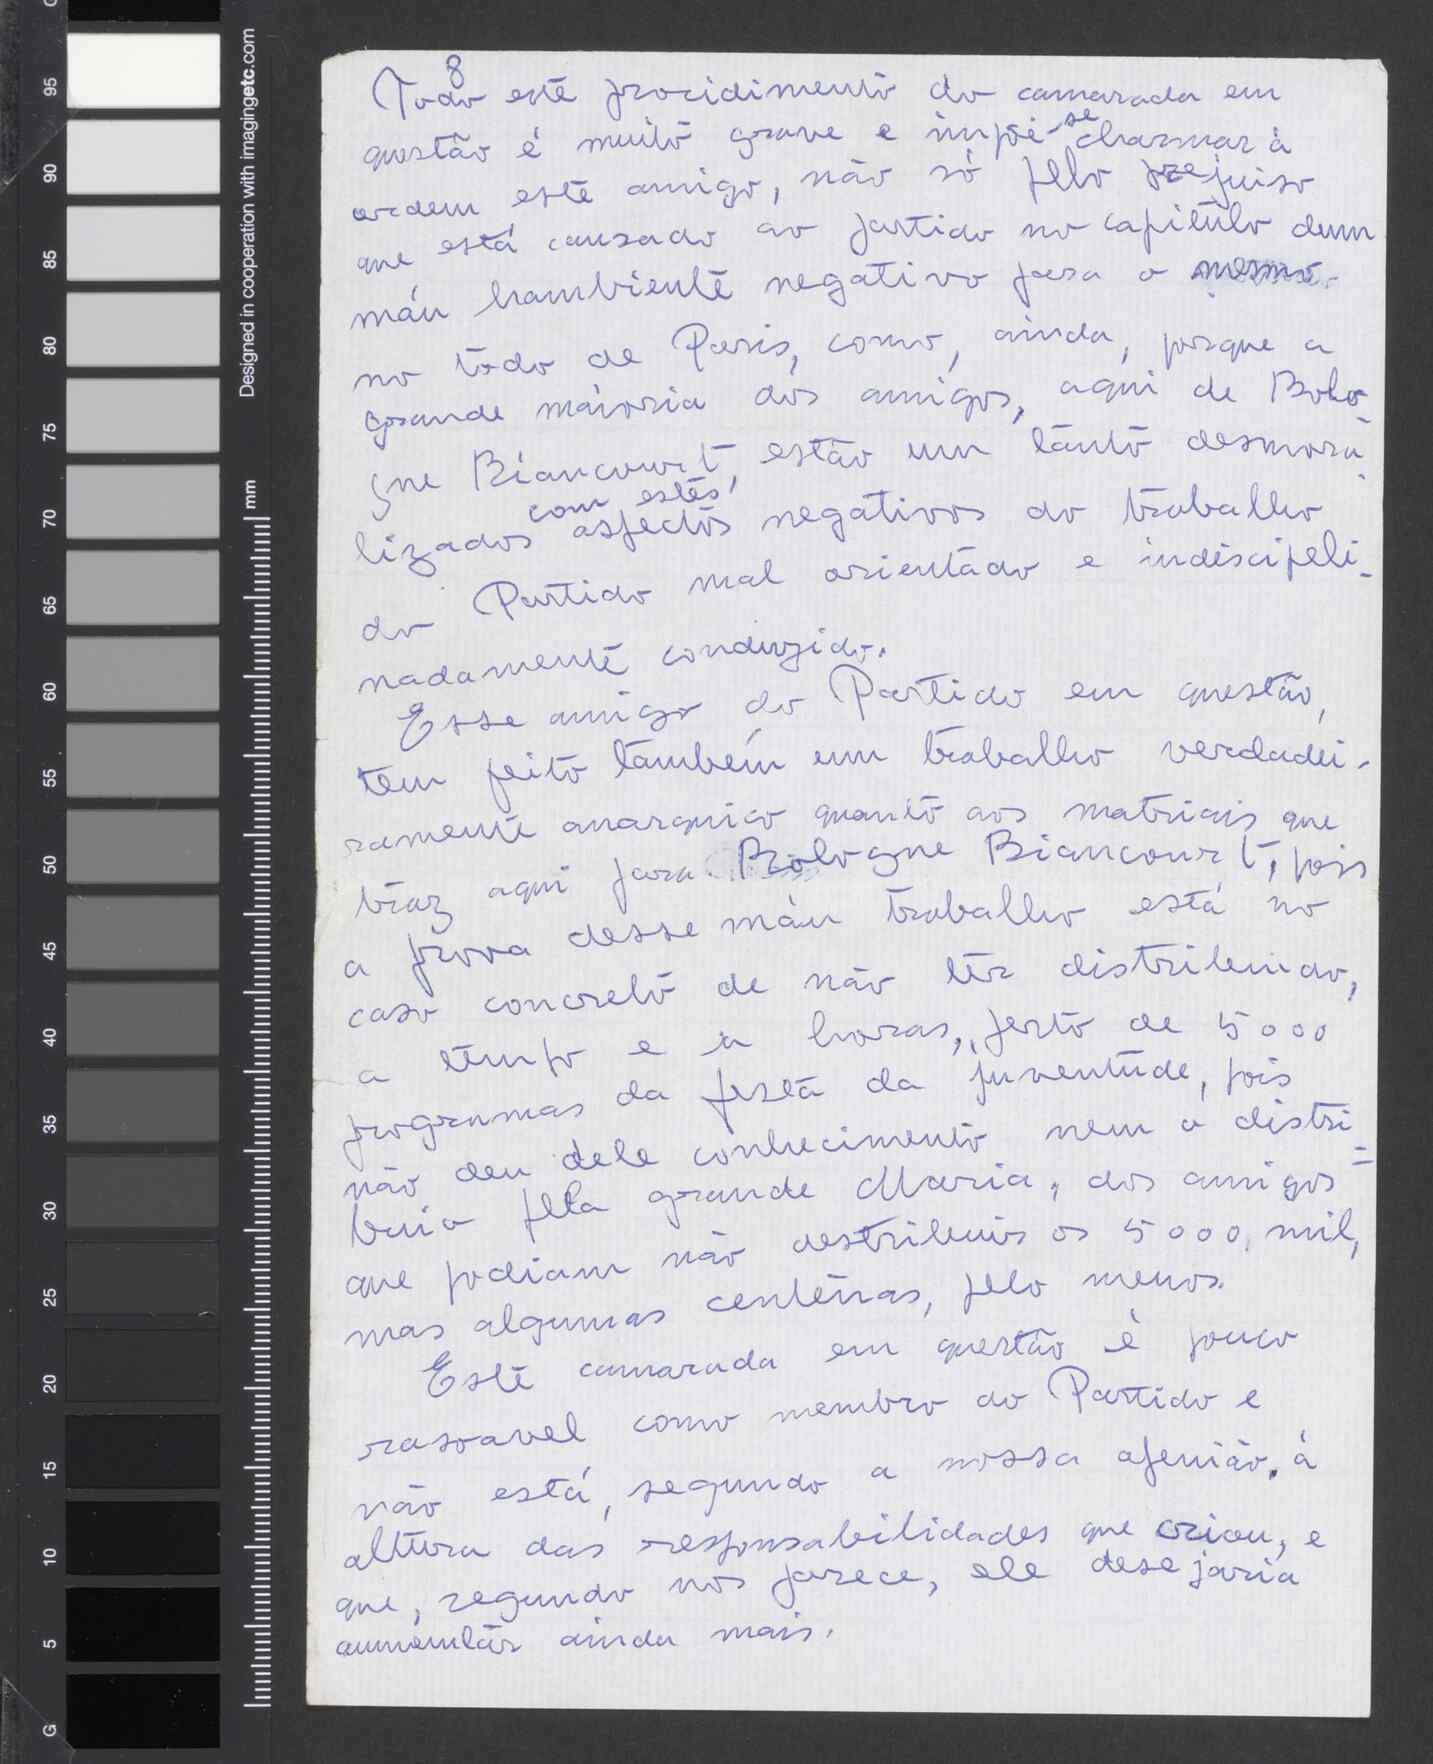 8
Todo este procidimento do camarada em
questão é muito grave e impõe-se charmar à
ordem este amigo, não só pelo prejuiso
que está causado ao partido no capitulo dum
máu hambiente negativo para o mesmo.
no todo de Paris, como, ainda, porque a
grande maioria dos amigos, aqui de Bolo-
gne Biancourt, estão um tanto desmora-
lizados com estes aspectos negativos do traballho
do Partido mal orientado e indiscipeli-
nadamente conduzido.
Esse amigo do Partido em questão,
tem feito também um traballho verdadei-
ramente anarquico quanto aos matriais que
traz aqui para Bologne Biancourt, pois
a prova desse máu traballho está no
caso concreto de não ter distribuido,
a tempo e a horas, perto de 5000
programas da festa da juventude, pois
não deu dele conhecimento nem o distri=
buio pela grande Maria, dos amigos
que podiam não destribuir os 5000, mil,
mas algumas centenas, pelo menos.
Este camarada em questão é pouco
rasoavel como membro do Partido e
não está, segundo a nossa apenião, à
alttura das responsabilidades que criou, e
que, segundo nos parece, ele desejaria
aumentar ainda mais.
Designed in cooperation with imagingetc.com
mm
95
90
85
80
75
70
65
60
55
50
45
40
35
30
25
20
15
10
5
G